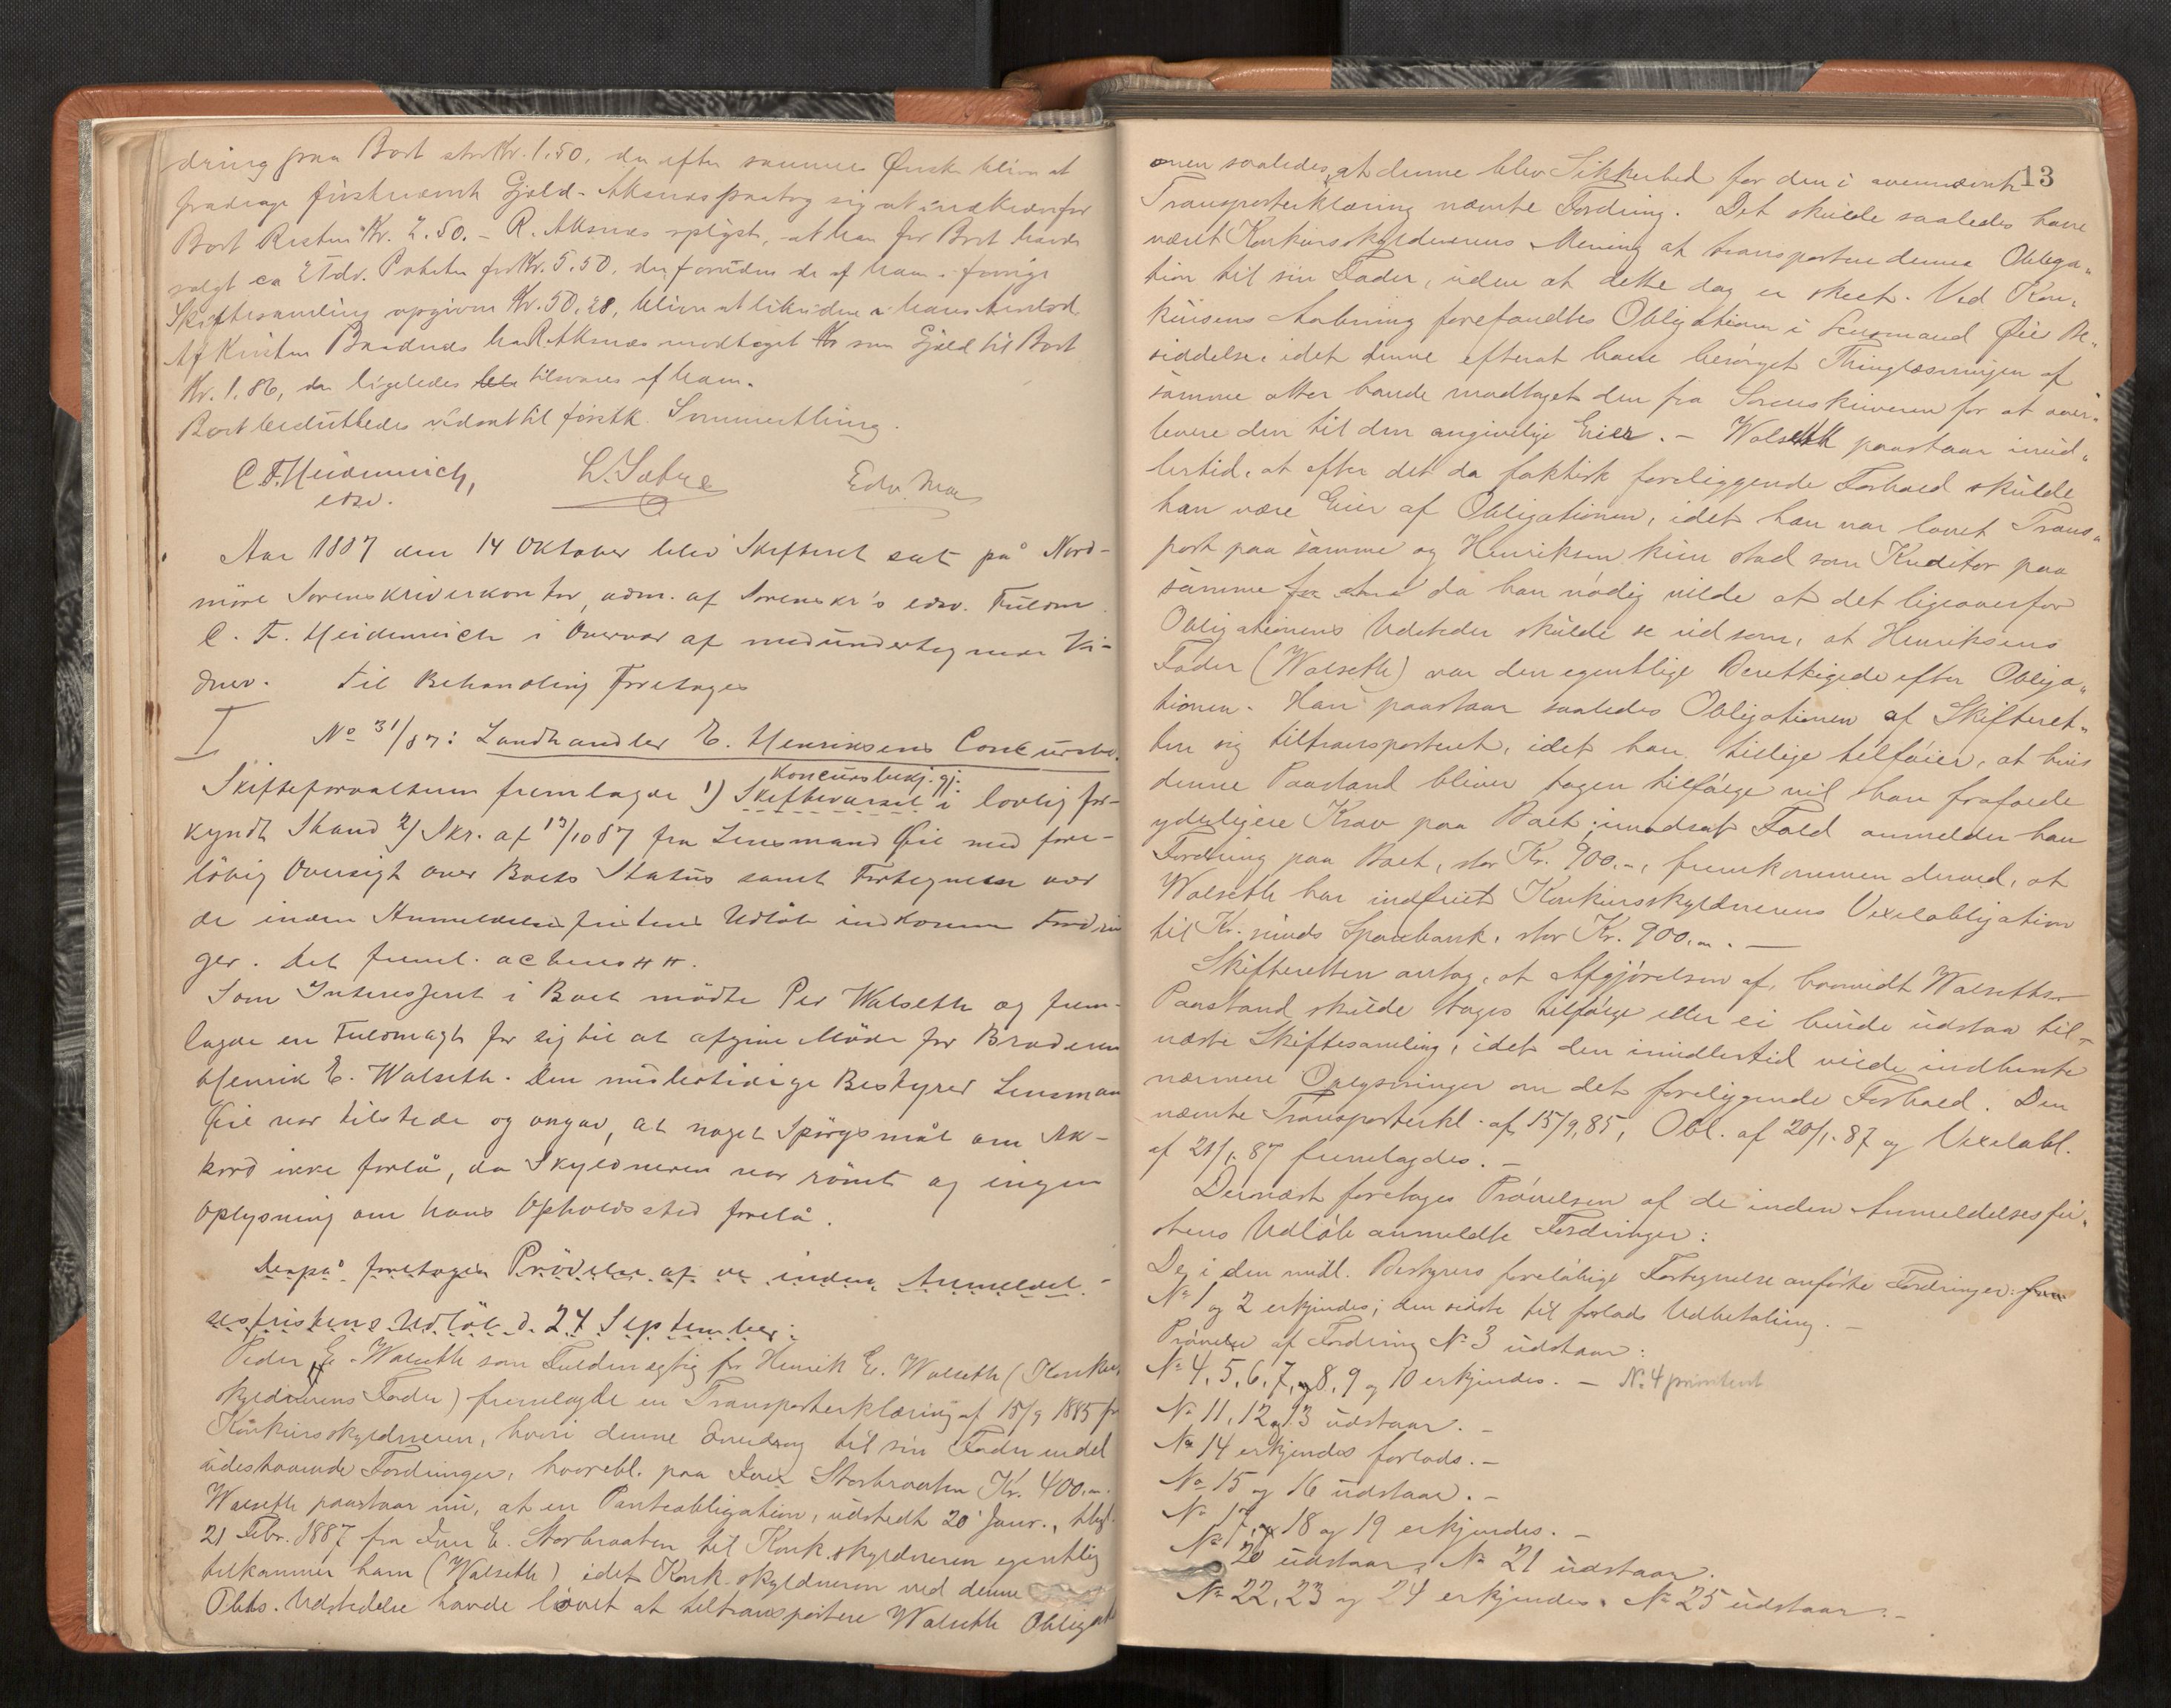 dring paa Boet stor Kr. 1.50, der efter sammes Ønske bliver at
fradrage førstnævnte Gjæld. Aksnes paatog sig at indkræve for
Boet Resten Kr. 2.50. - R. Aksnes oplyste, at han for Boet havde
solgt ca 2 Tdr. Poteter for Kr. 5.50, der foruden de af ham i forrige
Skiftesamling opgivne Kr. 50.28, bliver at likvidere i hans
Af Kristen Baadnes har R. Aksnes modtaget som Gjæld til Boet
Kr. 1.86, der ligeledes tilsvares af ham.
Boet besluttedes udsat til førstk. Sommerthing.
C. F. Heidenreich, L. Sæbye Edv. Moe
edsv.
Aar 1887 den 14 Oktober blev Skifteret sat på Nord-
møre Sorenskriverkontor, adm. af Sorenskr's edsv. Fuldm
C. F. Heidenreich i Overvær af medundertegnede Vi-
dner. Til Behandling foretoges
I No 31/87: Landhandler E. Henriksens Concursbo.
Koncursbekj.gj.
Skifteforvalteren fremlagde 1) Skiftevarsel i lovlig for-
kyndt Stand 2/ Skr. af 13/10 87 fra Lensmand Øie med fore-
løbig Oversigt over Boets Status samt Fortegnelse over
de inden Anmeldelsesfristens Udløb indkomne Fordrin
ger. Det freml. acteres ## .
Som Interesseret i Boet mødte Per Walseth og frem-
lagde en Fuldmagt for sig til at afgive Møde for Broderen
Henrik E. Walseth. Den midlertidige Bestyrer Lensman
Øie var tilstede og angav, at noget Spørgsmål om Ak-
kord ikke forelå, da Skyldneren var rømt og ingen
Oplysning om hans Opholdssted forelå.
Derpå foretoges Prøvelse af de inden Anmeldel-
sesfristens Udløb d. 24 September:
Peder E. Walseth som Fuldmægtig for Henrik E. Walseth (Konkurs
skyldnerens Fader) fremlagde en Transporterklæring af 15/9 1885 fra
Konkursskyldneren, hvori denne overdrog til sin Fader endel
udestaaende Fordringer, hvoribl. paa Iver Storbraaten Kr. 400.-.
Walseth paastaar nu, at en Panteobligation, udstedt 20 Janr., thgl.
21 Febr. 1887 fra Iver E. Storbraaten til Konk.skyldneren egentlig
tilkommer ham (Walseth), idet Konk.skyldneren ved denne
Obls. Udstedelse havde lovet at tiltransportere Walseth Obligati
13
onen saaledes, at denne blev Sikkerhed for den i ovennævnte
Transporterklæring nævnte Fordring. Det skulde saaledes have
været Konkursskyldnerens Mening at transportere denne Obliga-
tion til sin Fader, uden at dette dog er skeet. Ved Kon-
kursens Aabning forefandtes Obligationen i Lensmand Øie Be-
siddelse, idet denne efterat have besørget Thinglæsningen af
samme atter havde modtaget den fra Sorenskriveren for at over-
levere den til den angivelige Eier. - Walseth paastaar imid-
lertid, at efter det da faktisk foreliggende Forhold skulde
han være Eier af Obligationen, idet han var lovet Trans-
port paa samme og Henriksen kun stod som Kreditor paa
samme da han nødig vilde at det ligeoverfor
Obligationens Udsteder skulde se ud som, at Henriksens
Fader (Walseth) var den egentlige Berettigede efter Obliga-
tionen. Han paastaar saaledes Obligationen af Skifteret-
ten sig tiltransporteret, idet han tillige tilføier, at hvis
denne Paastand bliver tagen tilfølge vil han frafalde
yderligere Krav paa Boet; i modsat Fald anmelder han
Fordring paa Boet, stor Kr. 900.-, fremkommen derved, at
Walseth har indfriet Konkursskyldnerens Vexelobligation
til Kr.sunds Sparebank, stor Kr. 900.-. -
Skifteretten antog, at Afgjørelsen af, hvorvidt Walseths
Paastand skulde tages tilfølge eller ei burde udstaa til
næste Skiftesamling, idet den imidlertid vilde indhente
nærmere Oplysninger om det foreliggende Forhold. Den
nævnte Transporterkl. af 15/9.85, Obl. af 20/1.87 og Vexelobl.
af 21/1.87 fremlagdes. -
Dernæst foretoges Prøvelsen af de inden Anmeldelsesfri-
stens Udløb anmeldte Fordringer:
De i den midl. Bestyrers foreløbige Fortegnelse anførte Fordringer:
No 1 og 2 erkjendes; den sidste til forlods Udbetaling. -
Prøvelse af Fordring No 3 udstaar:
No 4, 5, 6, 7, 8, 9 og 10 erkjendes. - No. 4 prioritert
No 11, 12 og 13 udstaar. -
No 14 erkjendes forlods. -
No 15 og 16 udstaar. -
No 17, 18 og 19 erkjendes. -
No 20 udstaar, No 21 udstaar.
No 22, 23 og 24 erkjendes. No 25 udstaar. -